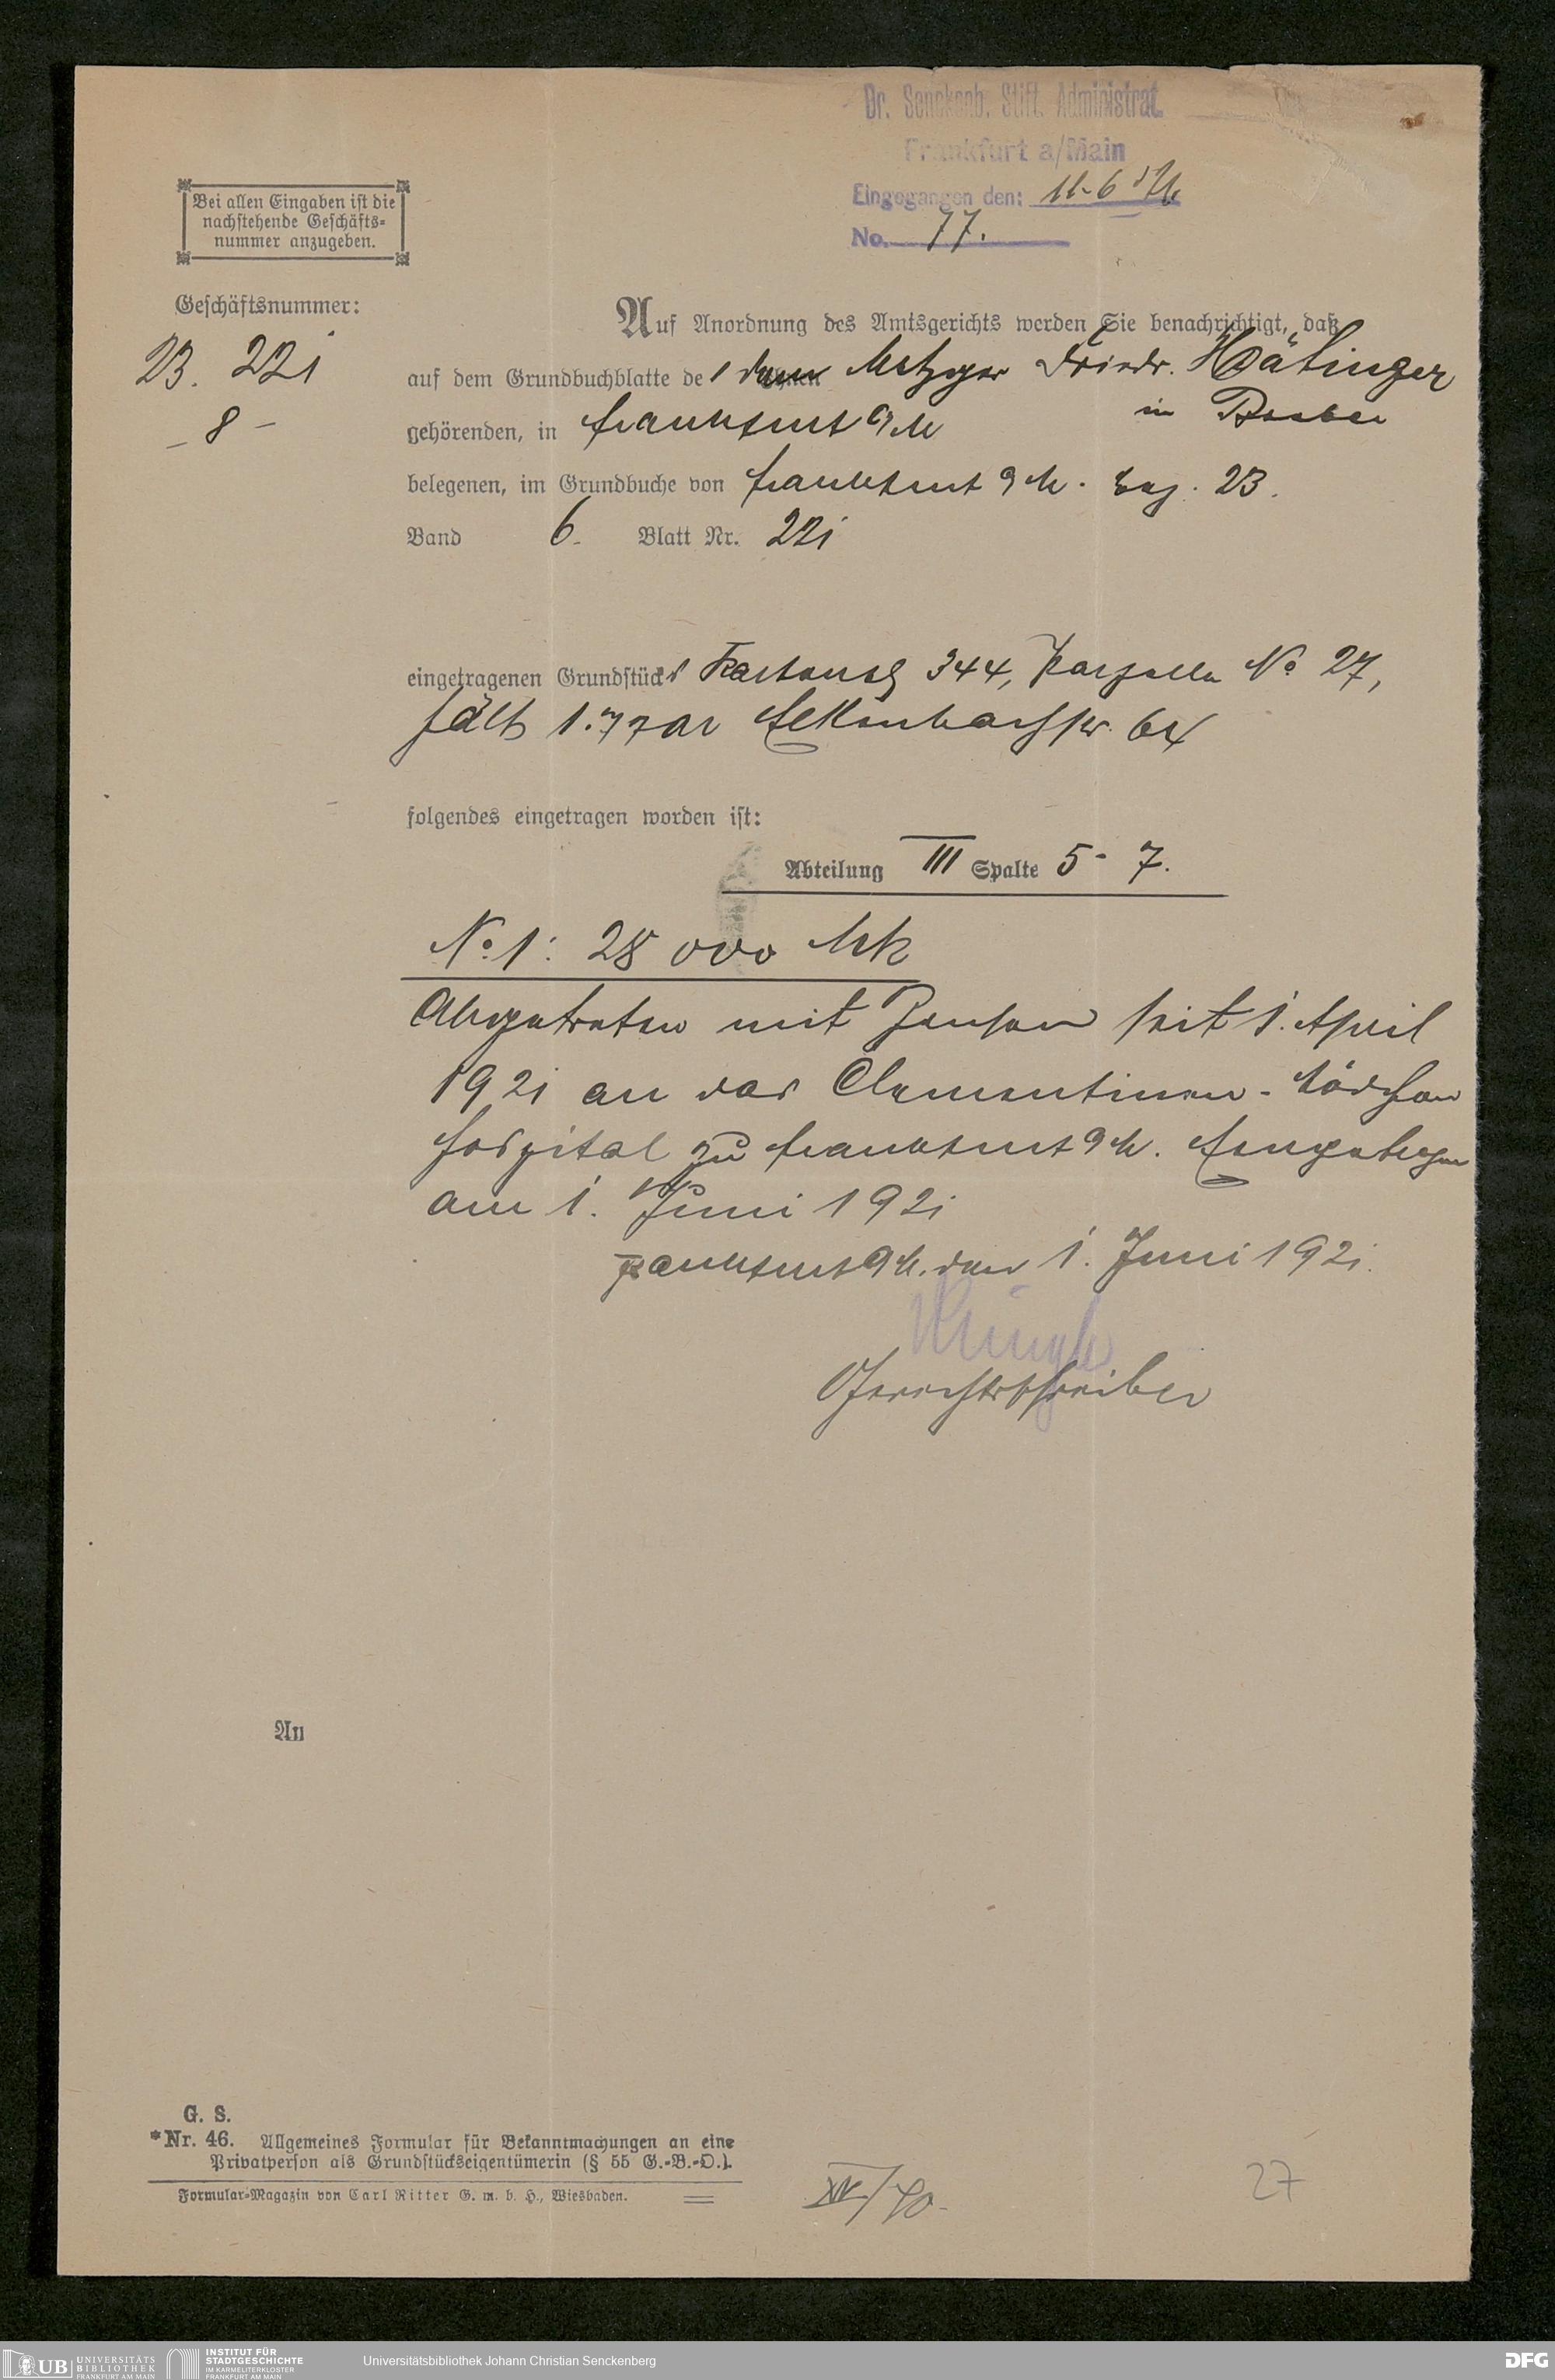 Dr. Senckenb. Stift. Administrat.
Frankfurt a/Main
Eingegangen den: 11-6
No. 77.
Bei allen Eingaben ist die
nachstehende Geschäfts-
nummer anzugeben.
Geschäftsnummer:
23. 221
- 8 -
Auf Anordnung des Amtsgerichts werden Sie benachrichtigt, daß
auf dem Grundbuchblatte des dem Metzger Friedr.
gehörenden, in Frankfurt a/M in
belegenen, im Grundbuche von Frankfurt a/M. Bez. 23.
Band 6. Blatt Nr. 221
eingetragenen Grundstücks Kartenbl 344, Parzelle No 27,
hält 1.77 ar
folgendes eingetragen worden ist:
Abteilung III Spalte 5-7.
No. 1: 28 000 Mk
Abgetreten mit Zinsen seit 1. April
1921 an das Clementinen-Mädchen
hospital zu Frankfurt a/M. Eingetragen
am 1. Juni 1921
Frankfurt a/M. den 1. Juni 1921.
Gerichtsschreiber
An
G. S.
*Nr. 46. Allgemeines Formular für Bekanntmachungen an eine
Privatperson als Grundstückseigentümerin (§ 55 G.-B.-O.).
Formular-Magazin von Carl Ritter G. m. b. H., Wiesbaden.
XIV/40.
27
UB UNIVERSITÄTS
BIBLIOTHEK
FRANKFURT AM MAIN
INSTITUT FÜR
STADTGESCHICHTE
IM KARMELITERKLOSTER
FRANKFURT AM MAIN
Universitätsbibliothek Johann Christian Senckenberg
DFG